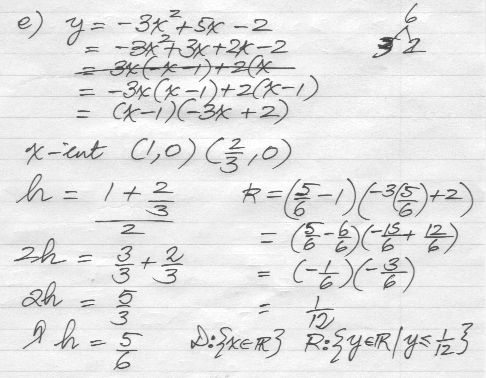 e) y = -3x² + 5x - 2
6
3 2
= -3x² + 3x + 2x - 2
= 3x(-x-1) + 2(x
= -3x(x-1) + 2(x-1)
= (x-1)(-3x+2)
x-int (1,0) (2/3, 0)
h = (1 + 2/3)/2
2h = 3/3 + 2/3
2h = 5/3
h = 5/6
k = (5/6 - 1)(-3(5/6) + 2)
= (5/6 - 6/6)(-15/6 + 12/6)
= (-1/6)(-3/6)
= 1/12
D:{x∈R} R:{y∈R | y ≤ 1/12}